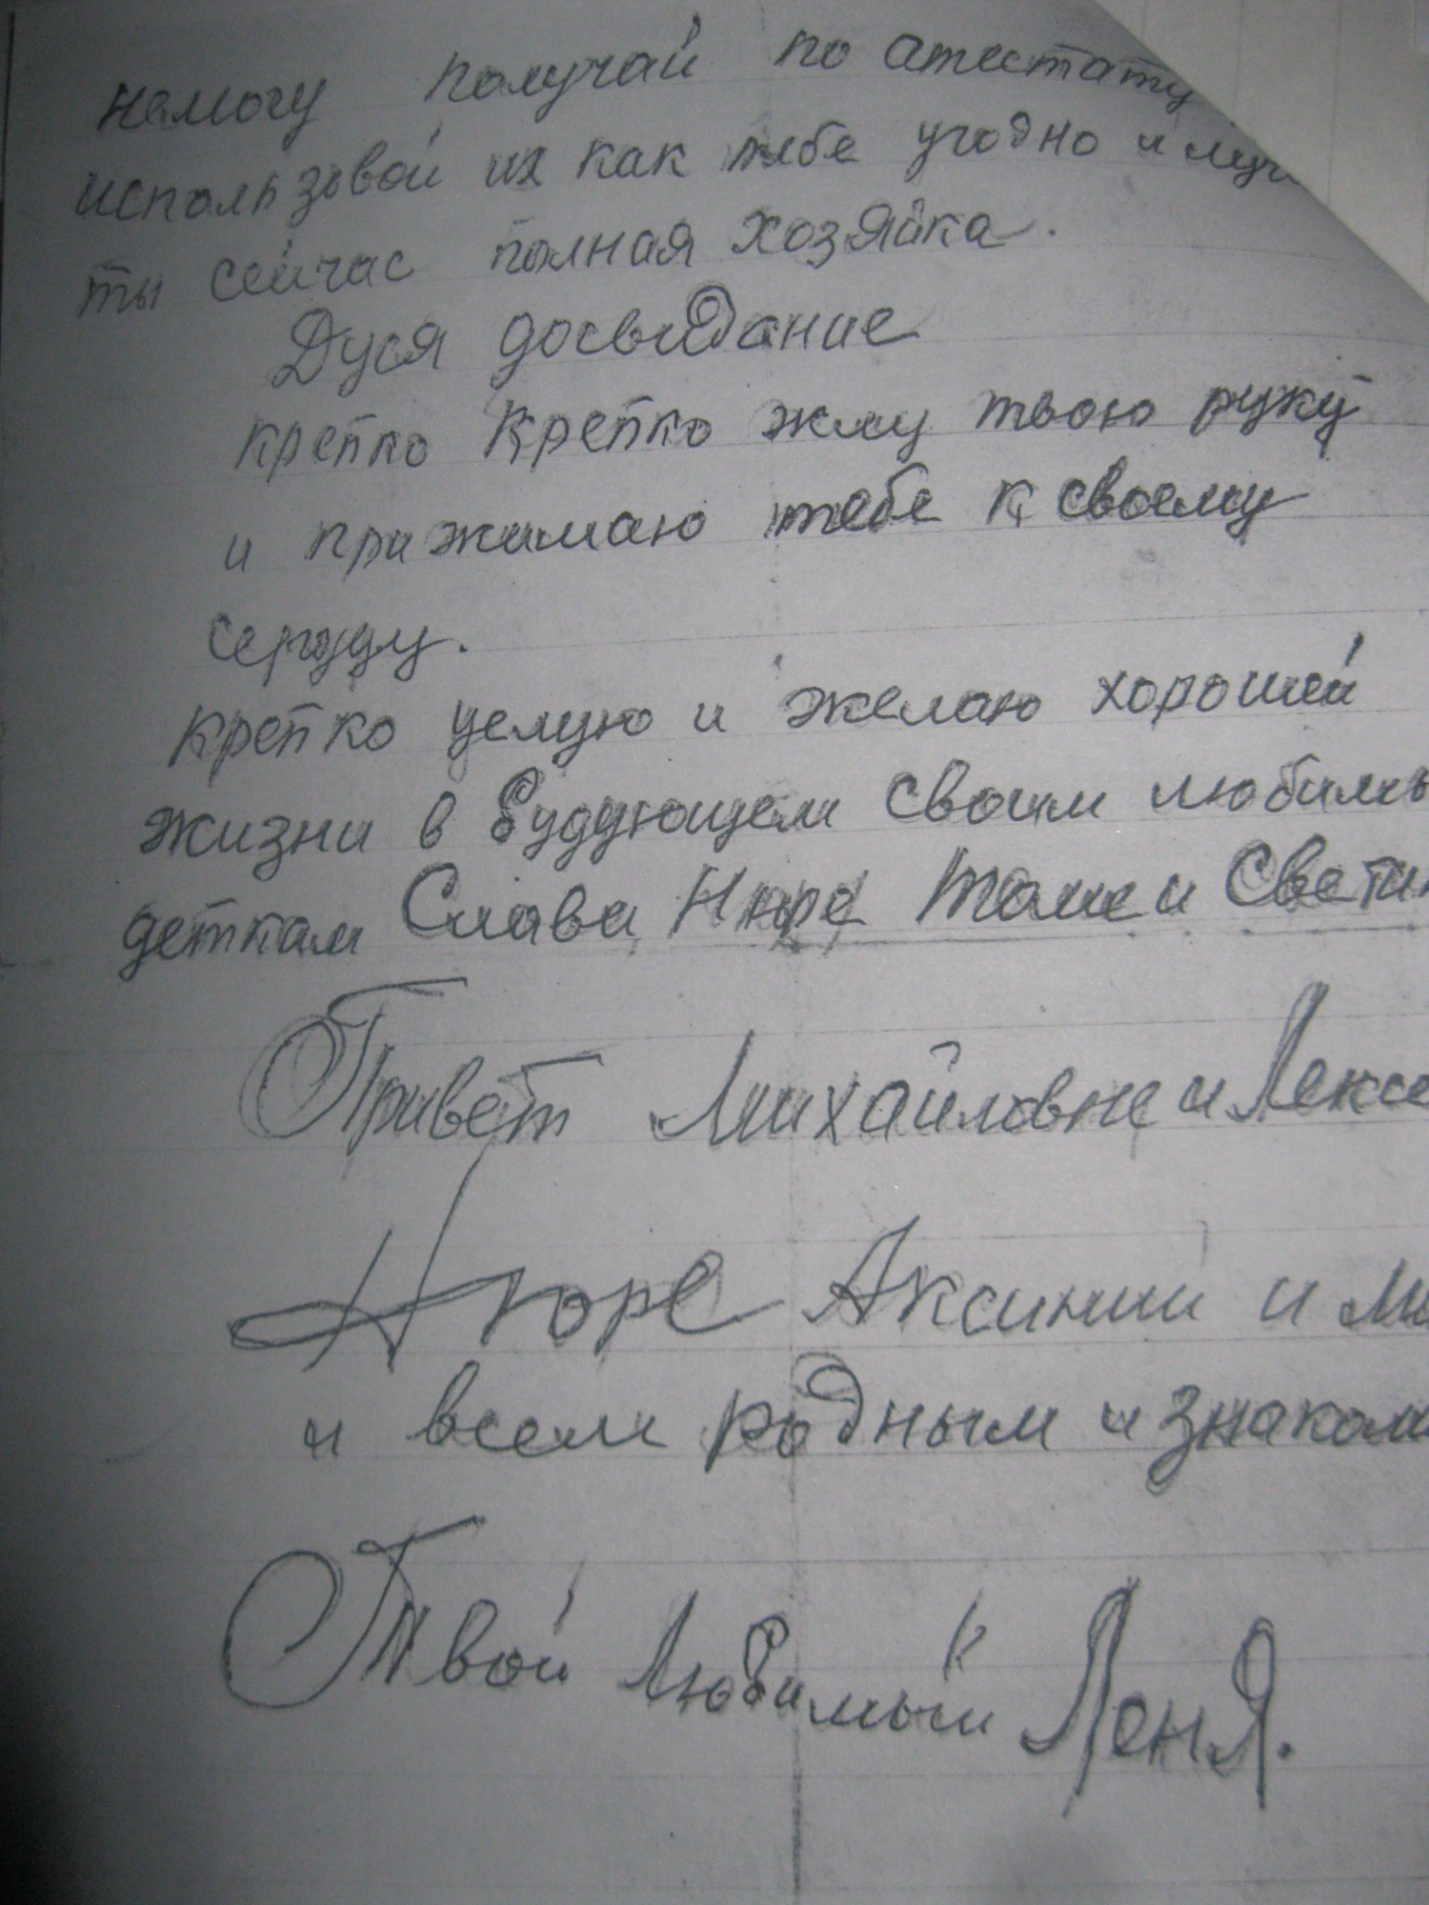 немогу получай по атестату
использовой их как тебе угодно и
ты сейчас полная хозяйка.
Дуся досвидание
крепко крепко жму твою руку
и прижимаю тебе к своему
сердцу.
крепко целую и желаю хорошей
жизни в будующем своим любимы
деткам Слава Нюре Томе и Светик
Привет Михайловне и Лексе
Нюре Аксинии и Ми
и всем родным и знаком
Твой Любимый Леня.